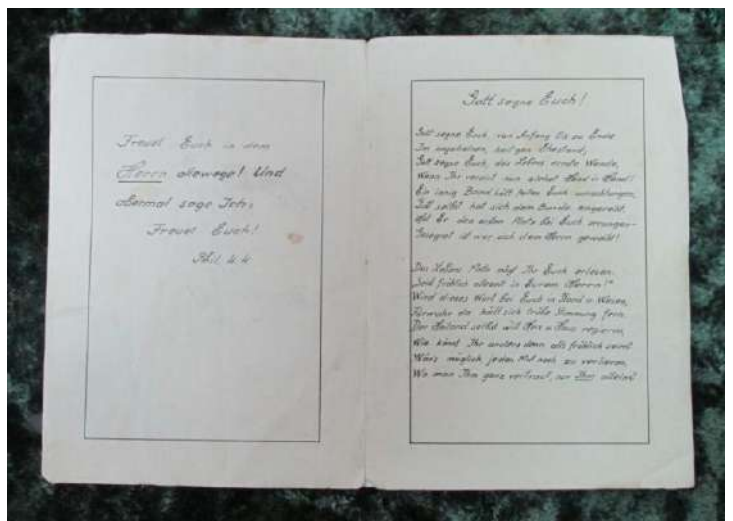 Freuet Euch in dem
Herrn allewege! Und
abermal sage Ich:
Freuet Euch!
Phil. 4.4.
Gott segne Euch!
Gott segne Euch, von Anfang bis zu Ende
Im ungeheinen, heil'gen Ehestand;
Gott segne Euch, des Lebens ernste Wende,
Wenn Ihr vereint nun ziehet Hand in Hand!
Ein innig Band hält fortan Euch umschlungen,
Gott selbst hat sich dem Bunde eingereiht.
Hat Er den ersten Platz bei Euch errungen-
Gesegnet ist wer sich dem Herrn geweiht!
Des Lebens Motto mögt Ihr Euch erlesen:
Seid fröhlich allezeit in Eurem Herrn!"
Wird dieses Wort bei Euch in Stand u. Wesen,
Fürwahr da hält sich trübe Stimmung fern.
Der Heiland selbst will Herz u. Haus regieren,
Wie könnt Ihr anders denn als fröhlich sein?
Wär's möglich jeden Mut noch zu verlieren,
Wo man Ihm ganz vertraut, nur Ihm allein?